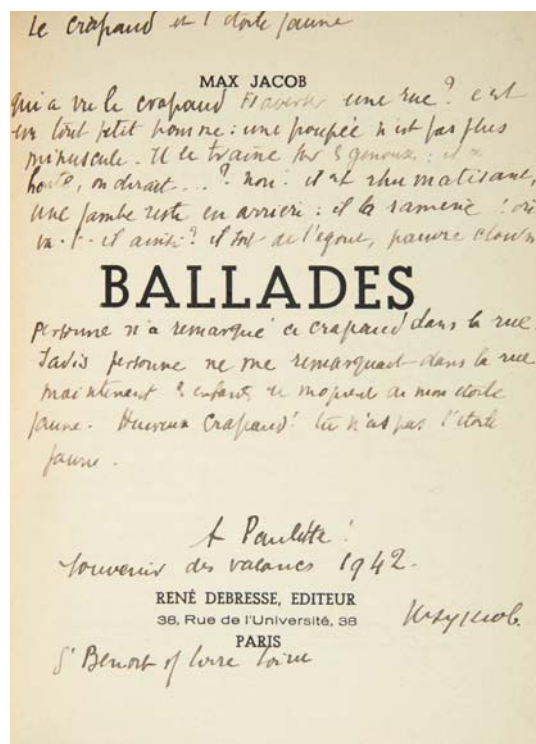 Le crapaud et l'étoile jaune
MAX JACOB
Qui a vu le crapaud traverser une rue ? c'est
un tout petit homme : une poupée n'est pas plus
minuscule. Il se traîne sur les genoux : il a
honte, on dirait ... ? non ! il est rhumatisant,
une jambe reste en arrière : il la ramène ! où
va-t-il ainsi ? il sort de l'égout, pauvre clown
BALLADES
personne n'a remarqué ce crapaud dans la rue.
Jadis personne ne me remarquait dans la rue
maintenant les enfants se moquent de mon étoile
jaune. Heureux crapaud ! tu n'as pas l'étoile
jaune.
A Paulette !
souvenir des vacances 1942.
RENÉ DEBRESSE, EDITEUR
38, Rue de l'Université, 38
Max Jacob.
PARIS
St Benoit s/ Loire Loiret